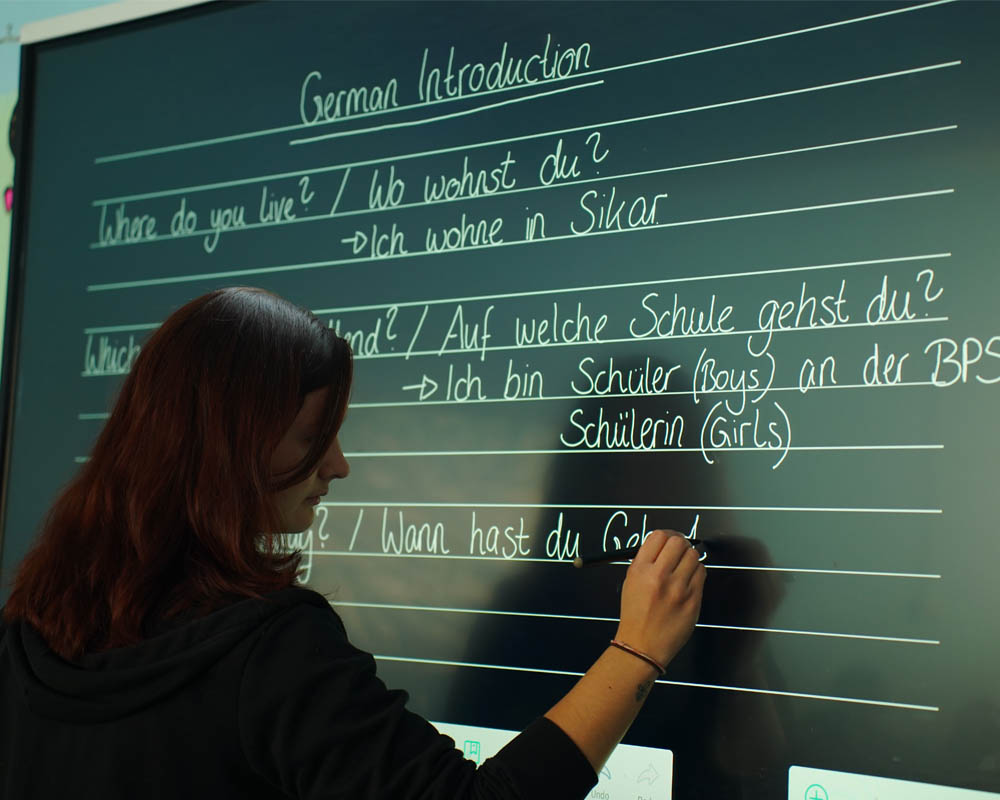 German Introduction
Where do you live? / Wo wohnst du?
→ Ich wohne in Sikar
Which / Auf welche Schule gehst du?
→ Ich bin Schüler (Boys) an der BPS
Schülerin (Girls)
? / Wann hast du
Undo